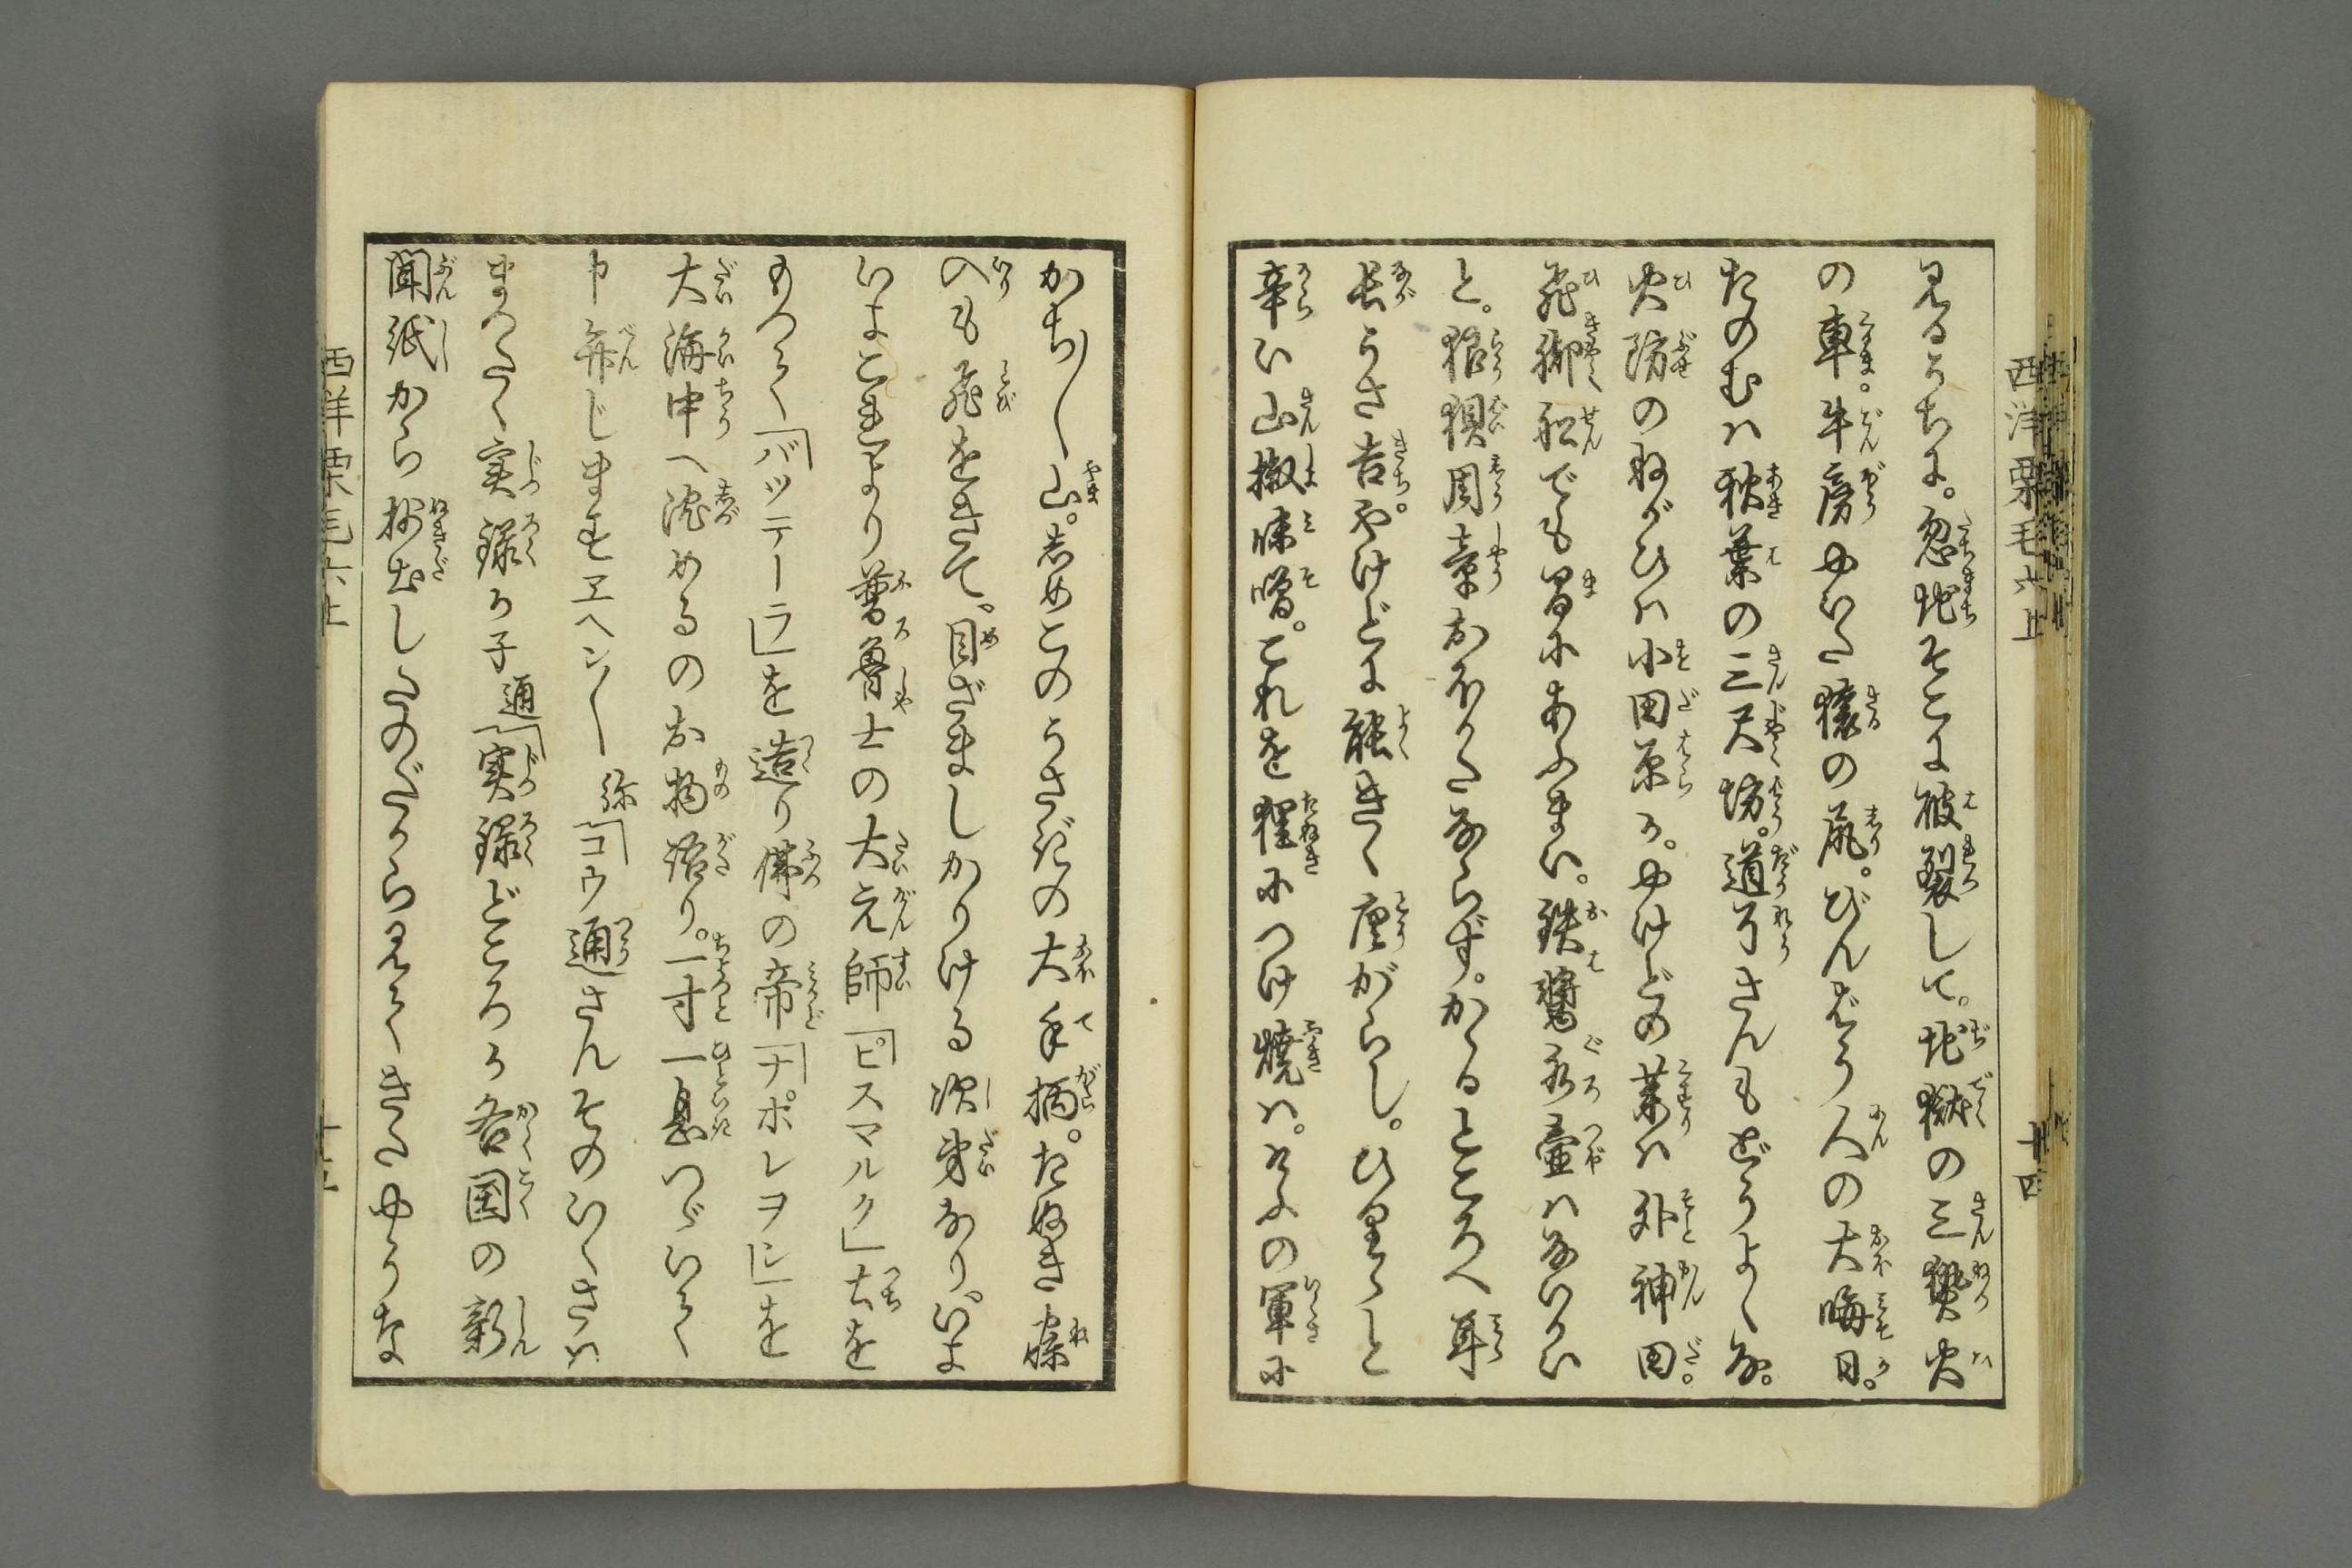 西洋栗毛六上
十四
見るうちに。忽地そこに破裂して。地獄の三熱火
の車。牛房やいた猿の尻。びんぼう人の大晦日。
たのむハ秋葉の三尺坊。道了さんもどうよくな。
火防のねがひハ小田原か。やけどの薬ハ外神田。
飛脚船でも間にあふまい。鉄漿永壷ハないかい
と。狼狽周章おほかたならず。かゝるところへ耳
長うさ吉。やけどに能きく唐がらし。ひりゝと
辛い山椒味噌。これを狸につけ焼ハ。けふの軍に
かち〳〵山。しめこのうさぎの大手柄。たぬき寐
入も飛をきて。目ざましかりける次第なり。いよ
いよこれより普魯士の大元帥「ピスマルク」士を
もつて「バッテーラ」を造り佛の帝「ナポレヲン」を
大海中へ沈めるのお物語り。一寸一息つがいて
申弁じますヱヘン〳〵弥「コウ通さんそのいくさハ
まつたく実録か子通「実録どころか各国の新
聞紙から抜出したのだから見てきたやうな
西洋栗毛六上
十五